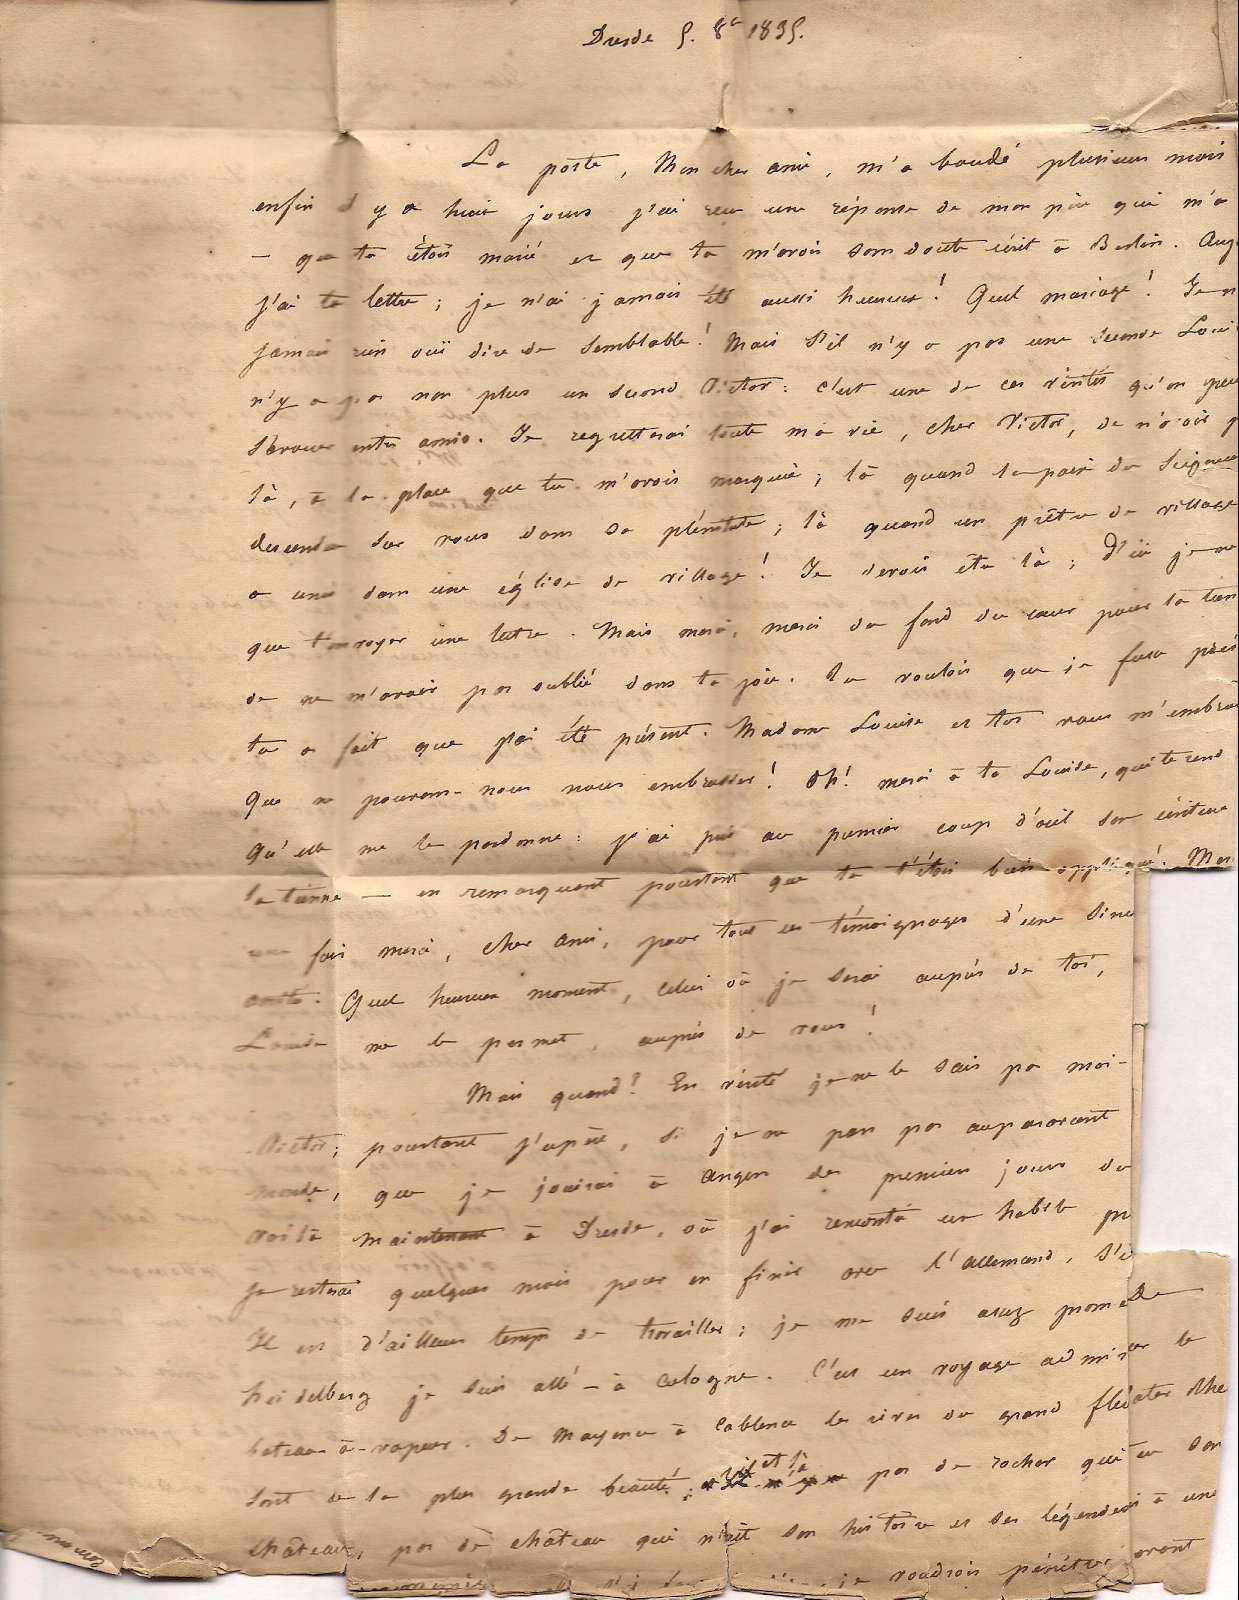 Dresde 5. 8e 1835.
La poste, Mon cher ami, m'a boudé plusieurs mois
enfin il y a huit jours j'ai reçu une réponse de mon père qui m'a
– que tu étois marié et que tu m'avois sans doute écrit à Berlin.
j'ai ta lettre ; je n'ai jamais été aussi heureux ! Quel mariage ! Je n
jamais rien ouï dire de semblable ! Mais s'il n'y a pas une seconde Loui
n'y a pas non plus un second Victor : c'est une de ces vérités qu'on peu
s'avouer entre amis. Je regretterai toute ma vie, cher Victor, de n'avoir p
là, à la place que tu m'avois marquée ; là quand la paix du Seigneur
descendu sur vous dans sa plénitude ; là quand un prêtre de village
a unis dans une église de village ! Je devois être là ; d'ici je ne
que t'envoyer une lettre. Mais merci, merci du fond du cœur pour la tien
de ne m'avoir pas oublié dans ta joie. Tu voulois que je fusse prés
tu a fait que j'ai été présent. Madame Louise et toi vous m'embras
Que ne pouvons-nous nous embrasser ! Oh ! merci à ta Louise, qui te rend
Qu'elle me le pardonne : j'ai pris au premier coup d'œil son écriture
la tienne — en remarquant pourtant que tu t'étois bien appliqué !
une fois merci, cher ami, pour tous ces témoignages d'une sinc
amitié. Quel heureux moment, celui où je serai auprès de toi,
Louise me le permet, auprès de vous !
Mais quand ? En vérité je ne le sais pas moi-
Victor ; pourtant j'espère, si je ne pars pas auparavant
monde, que je jouirai à Angers des premiers jours du
voilà maintenant à Dresde, où j'ai remonté un habit
Je resterai quelques mois pour en finir avec l'allemand, s'i
Il est d'ailleurs temps de travailler ; je me suis assez promé De
heidelberg je suis allé – à Cologne. C'est un voyage admir le
bateau-à-vapeur. De Mayence à Coblence les rives du grand fle
sont de la plus grande beauté ; pas de rocher qui son
château, pas de château qui n'ait son histoire et ses légendes à une
je voudrois pénétrer avant